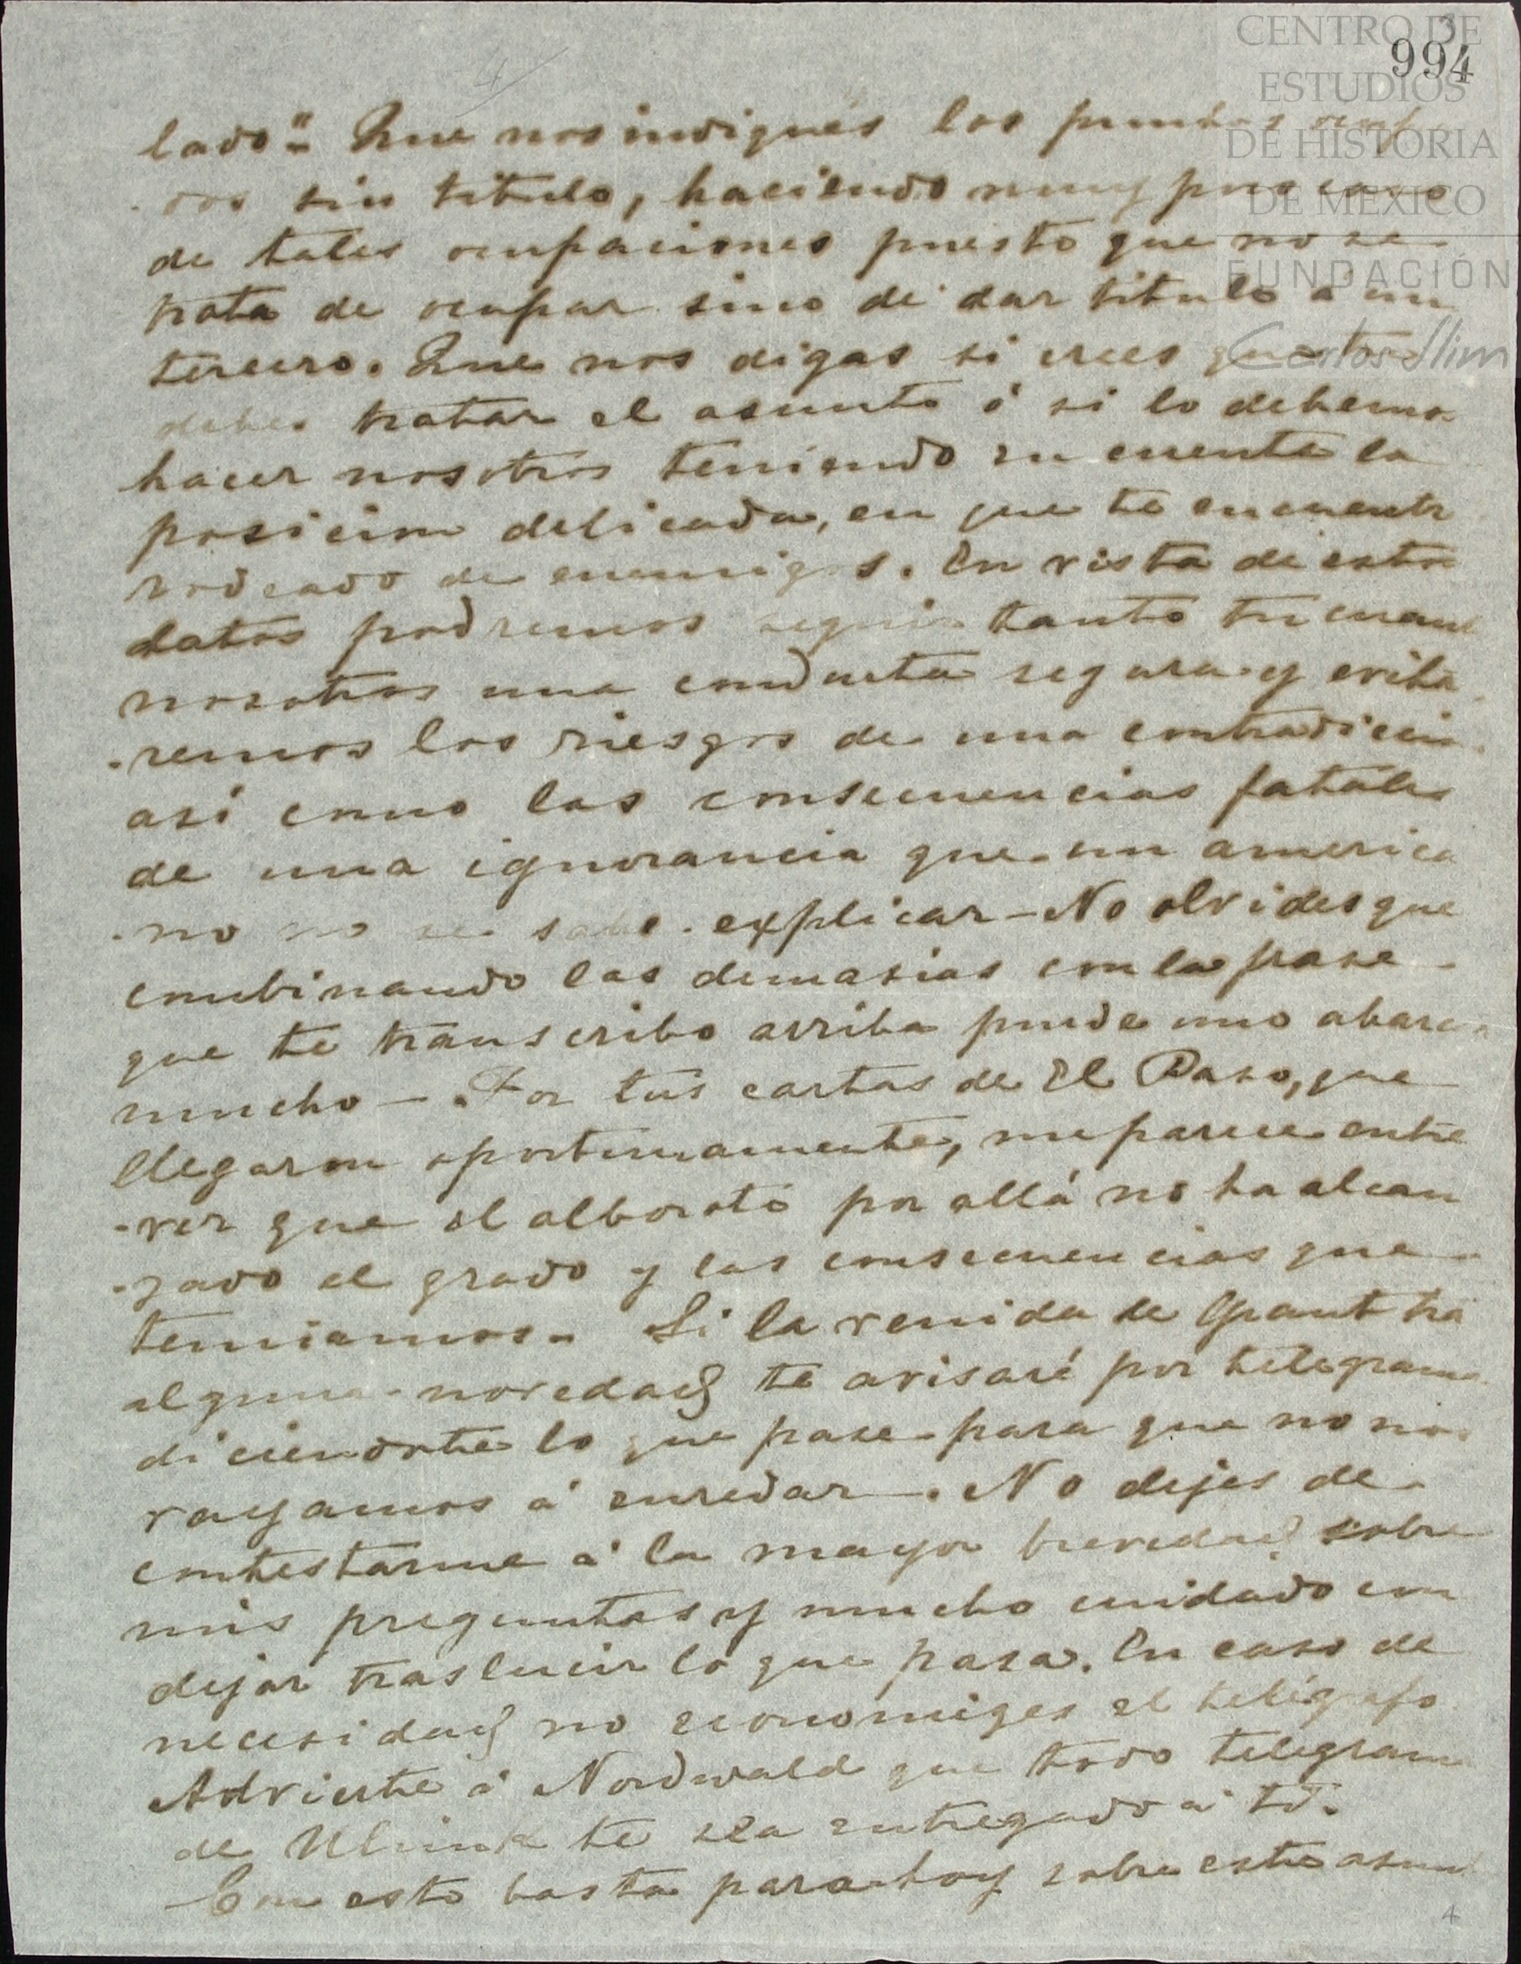 994
CENTRO DE
ESTUDIOS
DE HISTORIA
DE MÉXICO
FUNDACIÓN
Carlos Slim
lado". Que nos indiqués los puntos
dos sin titulo, haciendo muy poco caso
de tales ocupaciones puesto que no se
trata de ocupar sino de dar titulo á un
tercero. Que nos digas si crees que tu
debes tratar el asunto ó si lo debemos
hacer nosotros teniendo en cuenta la
posicion delicada, en que te encuentr
rodeado de enemigos. En vista de estos
datos podremos seguir tanto tu cuant
nosotros una conducta segura y evita
-remos los riesgos de una contradiccion
así como las consecuencias fatales
de una ignorancia que un america
-no no se sabe explicar - No olvides que
combinando las demasias con la frase
que te transcribo arriba puede uno abarca
mucho - Por tus cartas de El Paso, que
llegaron oportunamente, me parece entre
-ver que el alboroto por allá no ha alcan
-zado el grado y las consecuencias que
temiamos. Si la venida de Grant tra
alguna novedad te avisaré por telegrama
diciendote lo que pase para que no nos
vayamos á enredar. No dejes de
contestarme á la mayor brevedad sobre
mis preguntas y mucho cuidado con
dejar traslucir lo que pasa. En caso de
necesidad no economiges el telégrafo
Advierte á Nordwald que todo telegram
de te sea entregado á tí.
Con esto basta para hoy sobre este asunt
4